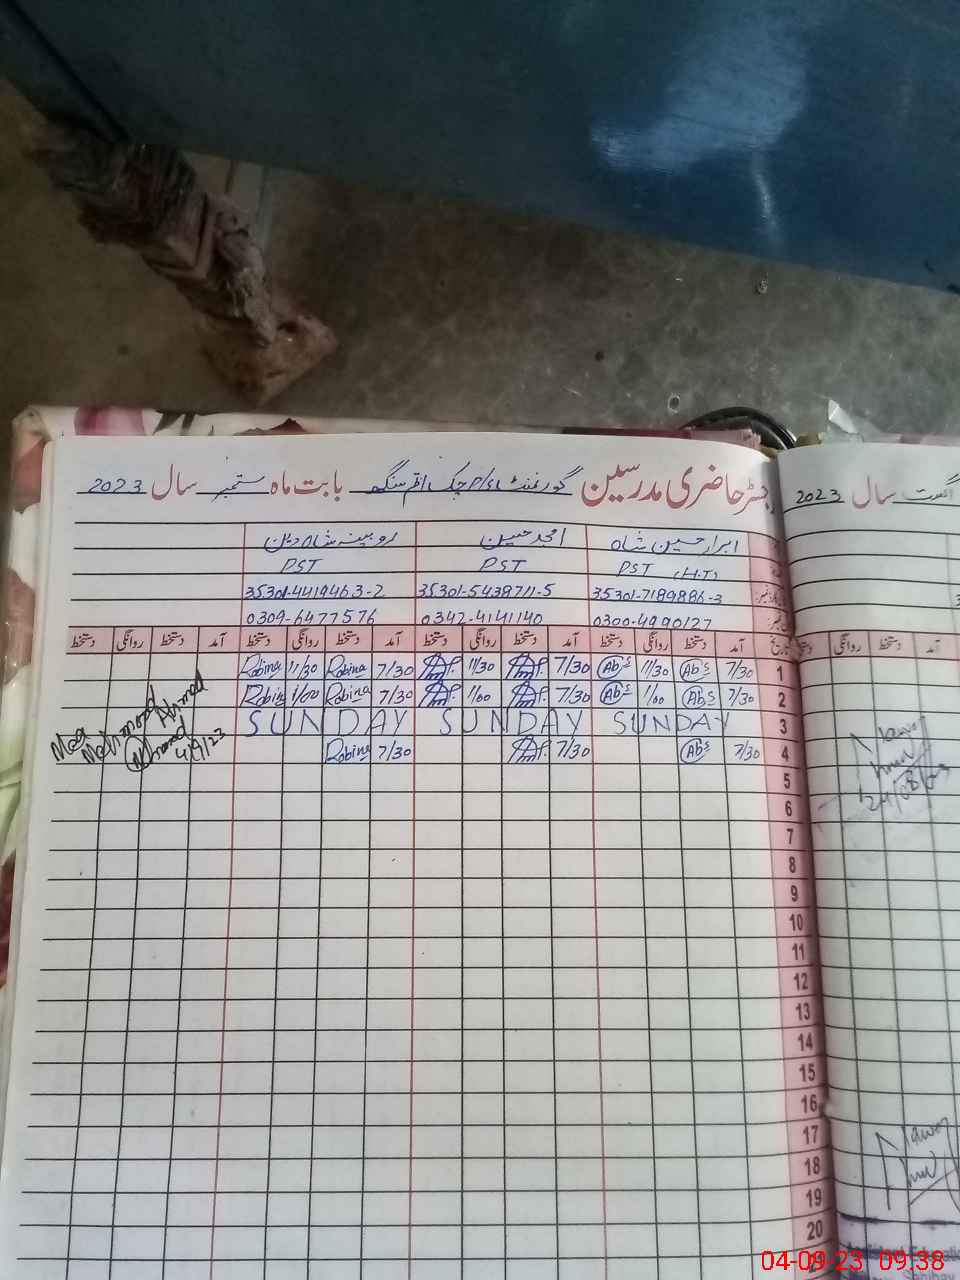 رجسٹر حاضری مدرسین گورنمنٹ چک سنگھ بابت ماہ ستمبر سال 2023
ابرار حسین شاہ امجد حسین روبینہ شاہ دین
PST (H.T) PST PST
35301-7189886-3 35301-5438711-5 35301-4419463-2
0300-4990127 0342-4141140 0309-6477576
تاریخ آمد دستخط روانگی دستخط آمد دستخط روانگی دستخط آمد دستخط روانگی دستخط آمد دستخط روانگی دستخط
1 7/30 Abs 11/30 Abs 7/30 11/30 7/30 Robina 11/30 Robina
2 7/30 Abs 1/00 Abs 7/30 1/00 7/30 Robina 1/00 Robina
3 SUNDAY SUNDAY SUNDAY
4 7/30 Abs 7/30 7/30 Robina
5
6
7
8
9
10
11
12
13
14
15
16
17
18
19
20
21
Mahmood Ahmad
Ahmad
4/9/23
اگست سال 2023
آمد دستخط روانگی دستخط
Nawaz
24/08/23
Nawaz
Assistant Education
04-09-23 09:38